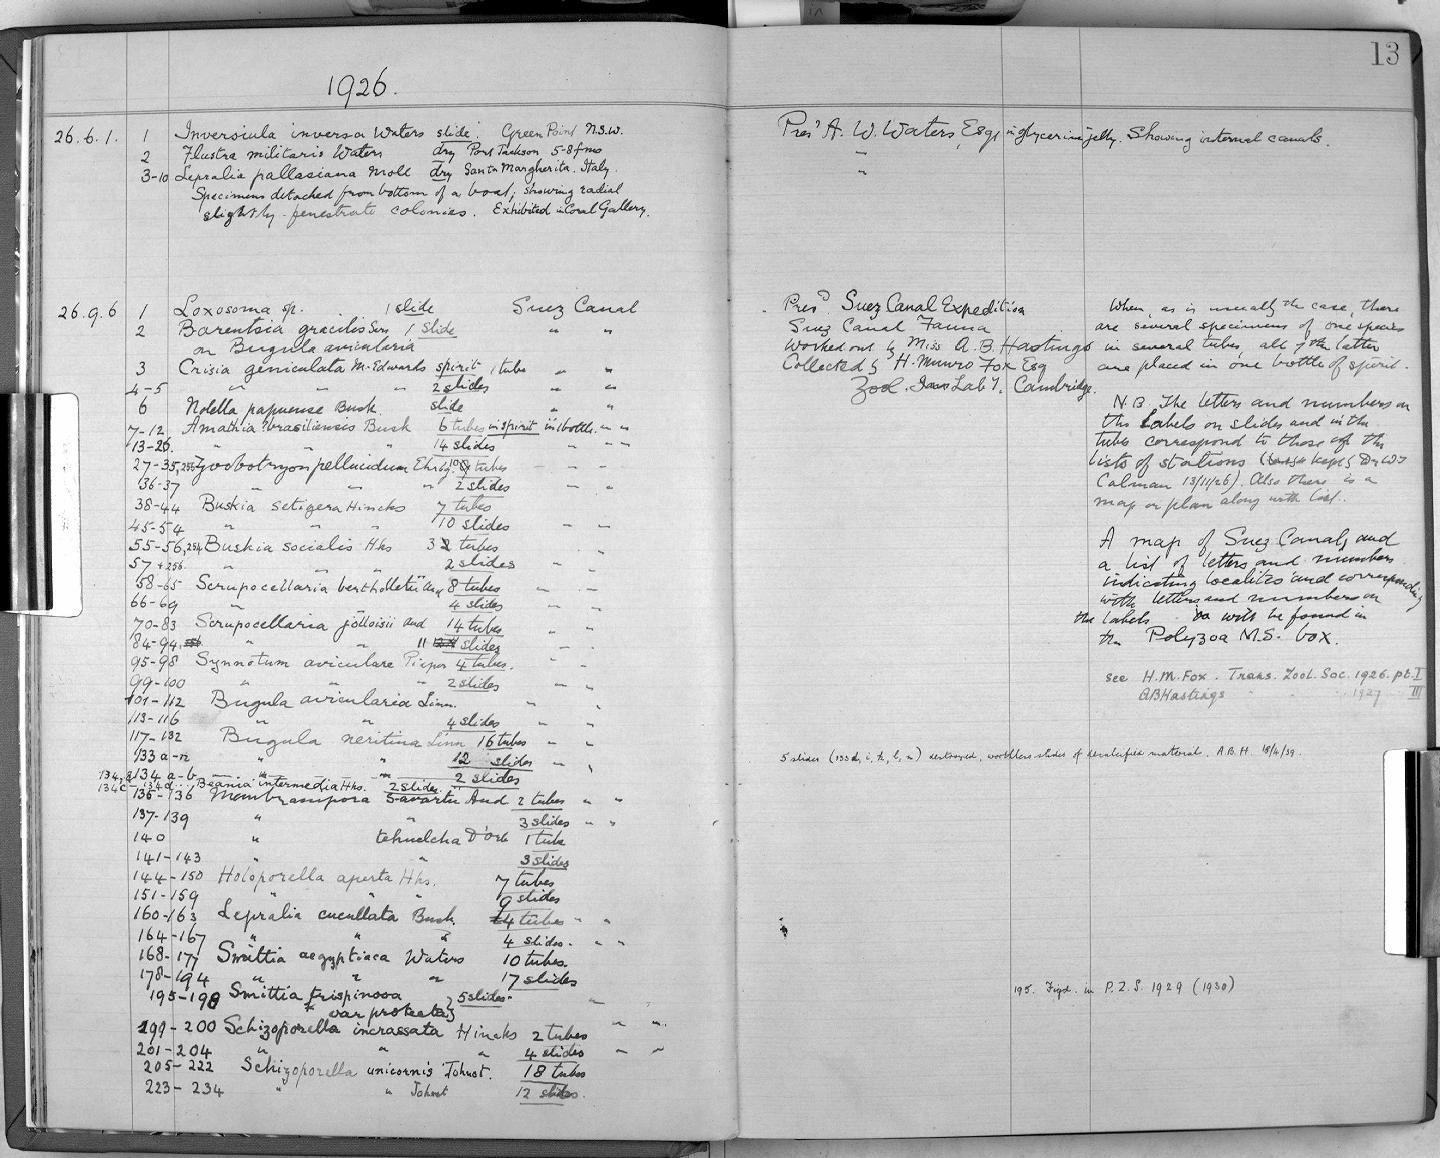 13
1926.
26.6.1. 1 Inversiula inversa Waters slide. Green Point N.S.W.
2 Flustra militaris Waters dry Port Jackson 5-8 fms
3-10 Lepralia pallasiana Moll dry Santa Margherita. Italy.
Specimens detached from bottom of a boat; showing radial
slightly-fenestrate colonies. Exhibited in Coral Gallery.
Pres^d A. W. Waters, Esq in glycerine jelly. Showing internal canals.
"
"
26.9.6 1 Loxosoma sp. 1 slide Suez Canal
2 Barentsia gracilis Sars 1 slide " "
on Bugula avicularia
3 Crisia geniculata M. Edwards spirit 1 tube " "
4-5 " " " 2 slides " "
6 Nolella papuense Busk. slide " "
7-12 Amathia brasiliensis Busk 6 tubes in spirit in 1 bottle. " "
13-26. " " 14 slides " "
27-35, Zoobotryon pellucidum Ehrbg. 10 tubes " "
36-37 " " " 2 slides " "
38-44 Buskia setigera Hincks 7 tubes
45-54 " " " 10 slides " "
55-56, 254 Buskia socialis Hks 3 tubes "
57 + 256 " " " 2 slides "
58-65 Scrupocellaria bertholletii Aud 8 tubes " "
66-69 " 4 slides " "
70-83 Scrupocellaria jolloisii Aud 14 tubes " "
84-94 " " 11 slides " "
95-98 Synnotum aviculare Pieper 4 tubes. " "
99-100 " " " 2 slides " "
101-112 Bugula avicularia Linn. " "
113-116 " " 4 slides " "
117-132 Bugula neritina Linn 16 tubes " "
133 a-n " " 12 slides " "
134 a-b " " 2 slides
134c-134d Beania intermedia Hks. 2 slides. "
135-136 Membranipora savartii Aud 2 tubes " "
137-139 " " 3 slides " "
140 " tehuelcha D'Orb 1 tube
141-143 " " 3 slides
144-150 Holoporella aperta Hks. 7 tubes
151-159 " " " 9 slides
160-163 Lepralia cucullata Busk. 4 tubes " "
164-167 " " " 4 slides. " "
168-177 Smittia aegyptiaca Waters 10 tubes.
178-194 " " " 17 slides
195-198 Smittia trispinosa } 5 slides. "
var protecta }
199-200 Schizoporella incrassata Hincks 2 tubes " "
201-204 " " " 4 slides " "
205-222 Schizoporella unicornis Johnst. 18 tubes
223-234 " " Johnst 12 slides.
Pres^d Suez Canal Expedition
Suez Canal Fauna
Worked out by Miss A. B. Hastings
Collected by H. Munro Fox Esq
Zool. Lab^y. Cambridge.
When, as is usually the case, there
are several specimens of one species
in several tubes, all of the latter
are placed in one bottle of spirit.
N.B. The letters and numbers on
the labels on slides and in the
tubes correspond to those of the
lists of stations kept by Dr W T
Calman 13/11/26). Also there is a
map or plan along with list.
A map of Suez Canal, and
a list of letters and numbers
indicating localities and corresponding
with letters and numbers on
the labels will be found in
the Polyzoa M.S. box.
see H.M. Fox. Trans. Zool. Soc. 1926. pt. I
A B Hastings " " " 1927 " III
5 slides (133d, i, k, l, n) destroyed, worthless slides of decalcified material. A.B.H. 18/4/39.
195. Figd. in P.Z.S. 1929 (1930)